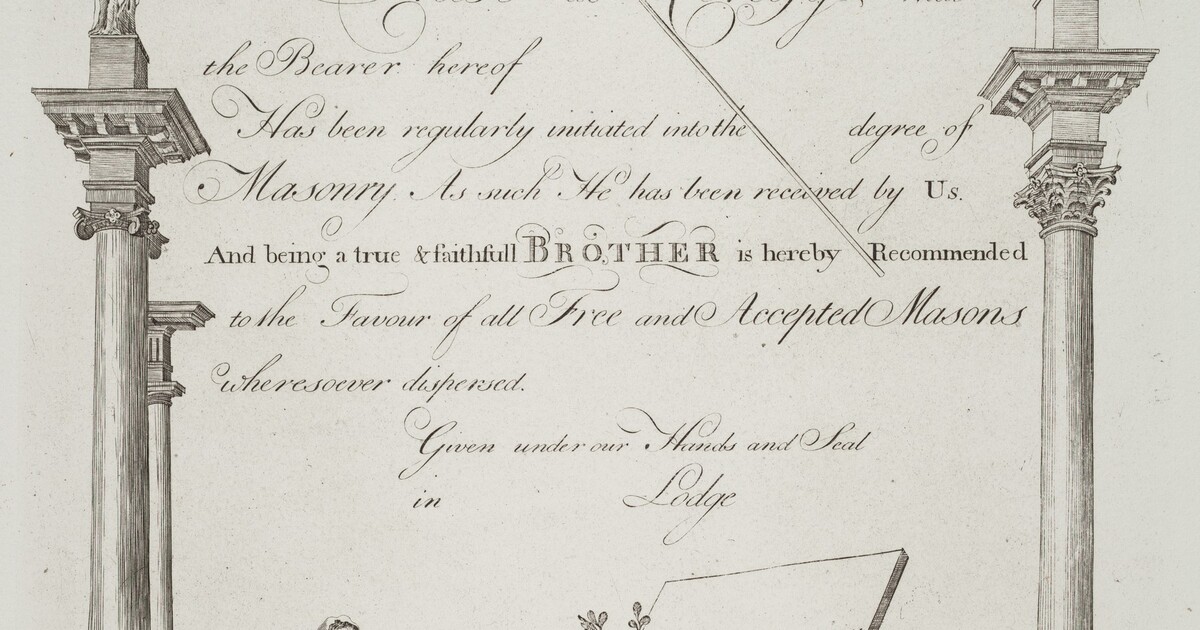 the Bearer hereof
Has been regularly initiated into the degree of
Masonry. As such He has been received by Us.
And being a true & faithfull BROTHER is hereby Recommended
to the Favour of all Free and Accepted Masons
wheresoever dispersed.
Given under our Hands and Seal
in Lodge